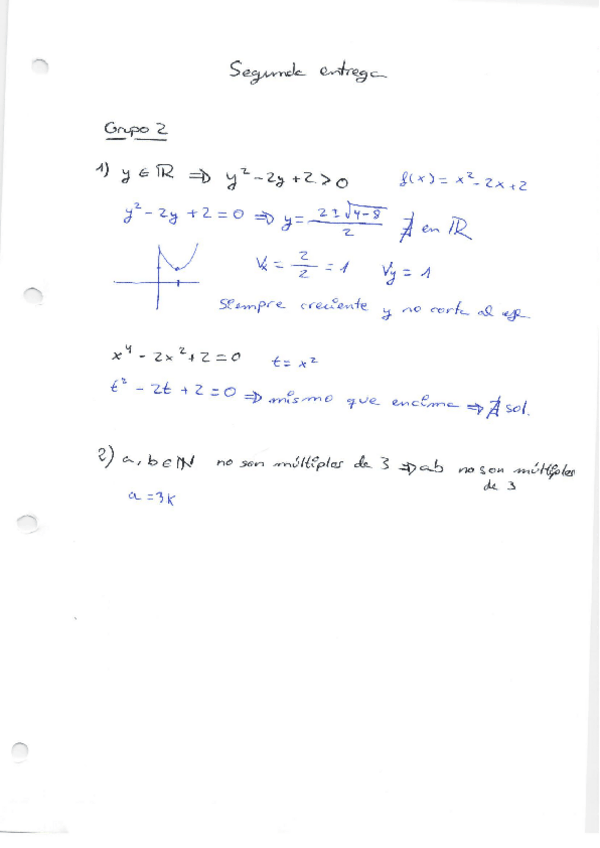 Segunda entrega
Grupo 2
1) y ∈ ℝ ⇒ y² - 2y + 2 > 0 f(x) = x² - 2x + 2
y² - 2y + 2 = 0 ⇒ y = (2 ± √(4-8))/2 ∄ en ℝ
Vx = 2/2 = 1 Vy = 1
Siempre creciente y no corta al eje.
x⁴ - 2x² + 2 = 0 t = x²
t² - 2t + 2 = 0 ⇒ mismo que encima ⇒ ∄ sol.
2) a, b ∈ ℕ no son múltiplos de 3 ⇒ ab no son múltiplos
de 3
a = 3k